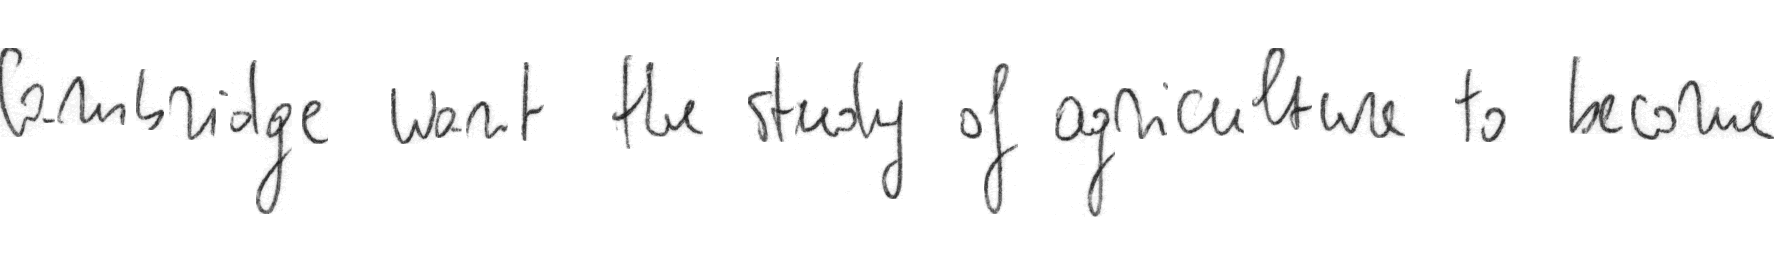 Cambridge want the study of agriculture to become